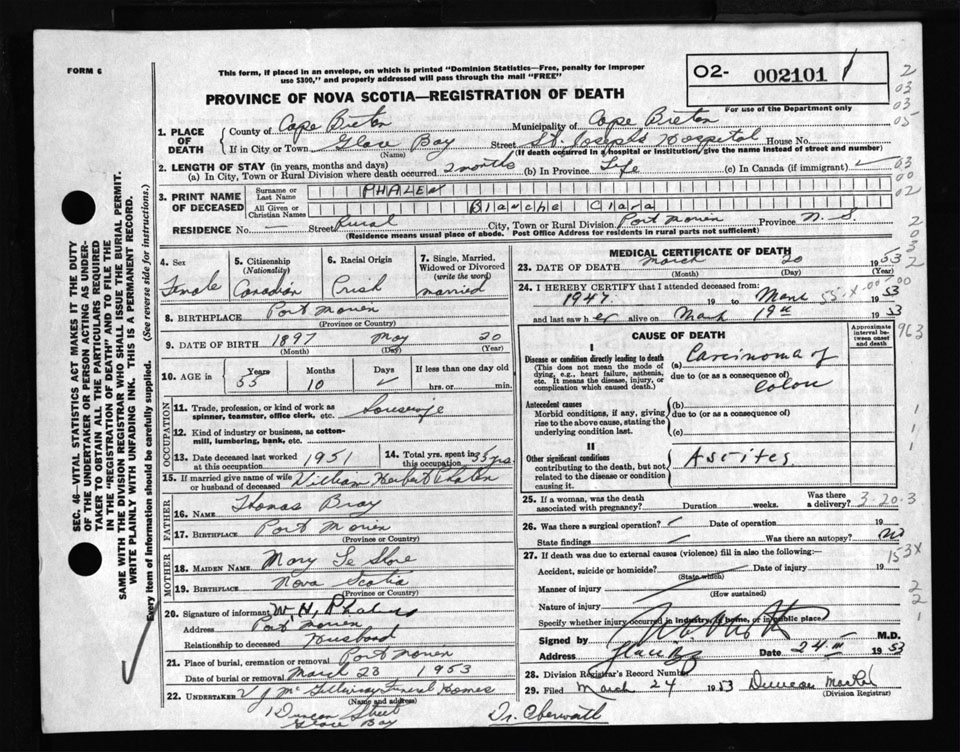 FORM 6
This form, if placed in an envelope, on which is printed "Dominion Statistics—Free, penalty for improper
use $300," and properly addressed will pass through the mail "FREE"
O2- 002101
For use of the Department only
PROVINCE OF NOVA SCOTIA—REGISTRATION OF DEATH
1. PLACE OF DEATH
County of Cape Breton Municipality of Cape Breton
If in City or Town Glace Bay (Name) Street St. Joseph's Hospital House No.
(If death occurred in a hospital or institution, give the name instead of street and number)
2. LENGTH OF STAY (in years, months and days)
(a) In City, Town or Rural Division where death occurred 2 months (b) In Province Life (c) In Canada (if immigrant)
3. PRINT NAME OF DECEASED
Surname or Last Name PHALEN
All Given or Christian Names Blanche Clara
RESIDENCE No. — Street Rural City, Town or Rural Division Port Morien Province N. S.
(Residence means usual place of abode. Post Office Address for residents in rural parts not sufficient)
4. Sex Female
5. Citizenship (Nationality) Canadian
6. Racial Origin Irish
7. Single, Married, Widowed or Divorced (write the word) married
8. BIRTHPLACE Port Morien
(Province or Country)
9. DATE OF BIRTH 1897 May 20
(Month) (Day) (Year)
10. AGE in Years 55 Months 10 Days If less than one day hrs. or min.
OCCUPATION
11. Trade, profession, or kind of work as spinner, teamster, office clerk, etc. Housewife
12. Kind of industry or business, as cotton-mill, lumbering, bank, etc.
13. Date deceased last worked at this occupation 1951
14. Total yrs. spent in this occupation 35 yrs.
15. If married give name of wife or husband of deceased William Herbert Phalen
FATHER
16. NAME Thomas Bray
17. BIRTHPLACE Port Morien
(Province or Country)
MOTHER
18. MAIDEN NAME Mary
19. BIRTHPLACE Nova Scotia
(Province or Country)
20. Signature of informant W. H. Phalen
Address Port Morien
Relationship to deceased Husband
21. Place of burial, cremation or removal Port Morien
Date of burial or removal March 23 1953
22. UNDERTAKER V J McGillivray Funeral Homes
(Name and address)
Street
Glace Bay
MEDICAL CERTIFICATE OF DEATH
23. DATE OF DEATH March 20 1953
(Month) (Day) (Year)
24. I HEREBY CERTIFY that I attended deceased from:
1947 19 to March 1953
and last saw her alive on March 19th 1953
CAUSE OF DEATH
Approximate interval between onset and death
I
Disease or condition directly leading to death
(This does not mean the mode of dying, e.g., heart failure, asthenia, etc. It means the disease, injury, or complication which caused death.)
(a) Carcinoma of
due to (or as a consequence of)
colon
Antecedent causes
Morbid conditions, if any, giving rise to the above cause, stating the underlying condition last.
(b)
due to (or as a consequence of)
(c)
II
Other significant conditions
contributing to the death, but not related to the disease or condition causing it.
Ascites
25. If a woman, was the death associated with pregnancy? Duration weeks. Was there a delivery?
3-20-3
26. Was there a surgical operation? Date of operation 19
State findings Was there an autopsy? no
27. If death was due to external causes (violence) fill in also the following:—
Accident, suicide or homicide? Date of injury 19
(State which)
Manner of injury
(How sustained)
Nature of injury
Specify whether injury occurred in industry, in home, or in public place
Signed by M.D.
Address Glace Bay Date 24 1953
28. Division Registrar's Record Number
29. Filed March 24 1953 Duncan
(Division Registrar)
Dr.
SEC. 46—VITAL STATISTICS ACT MAKES IT THE DUTY
OF THE UNDERTAKER OR PERSON ACTING AS UNDER-
TAKER TO OBTAIN ALL THE PARTICULARS REQUIRED
IN THE "REGISTRATION OF DEATH" AND TO FILE THE
SAME WITH THE DIVISION REGISTRAR WHO SHALL ISSUE THE BURIAL PERMIT.
WRITE PLAINLY WITH UNFADING INK. THIS IS A PERMANENT RECORD.
Every item of information should be carefully supplied. (See reverse side for instructions.)